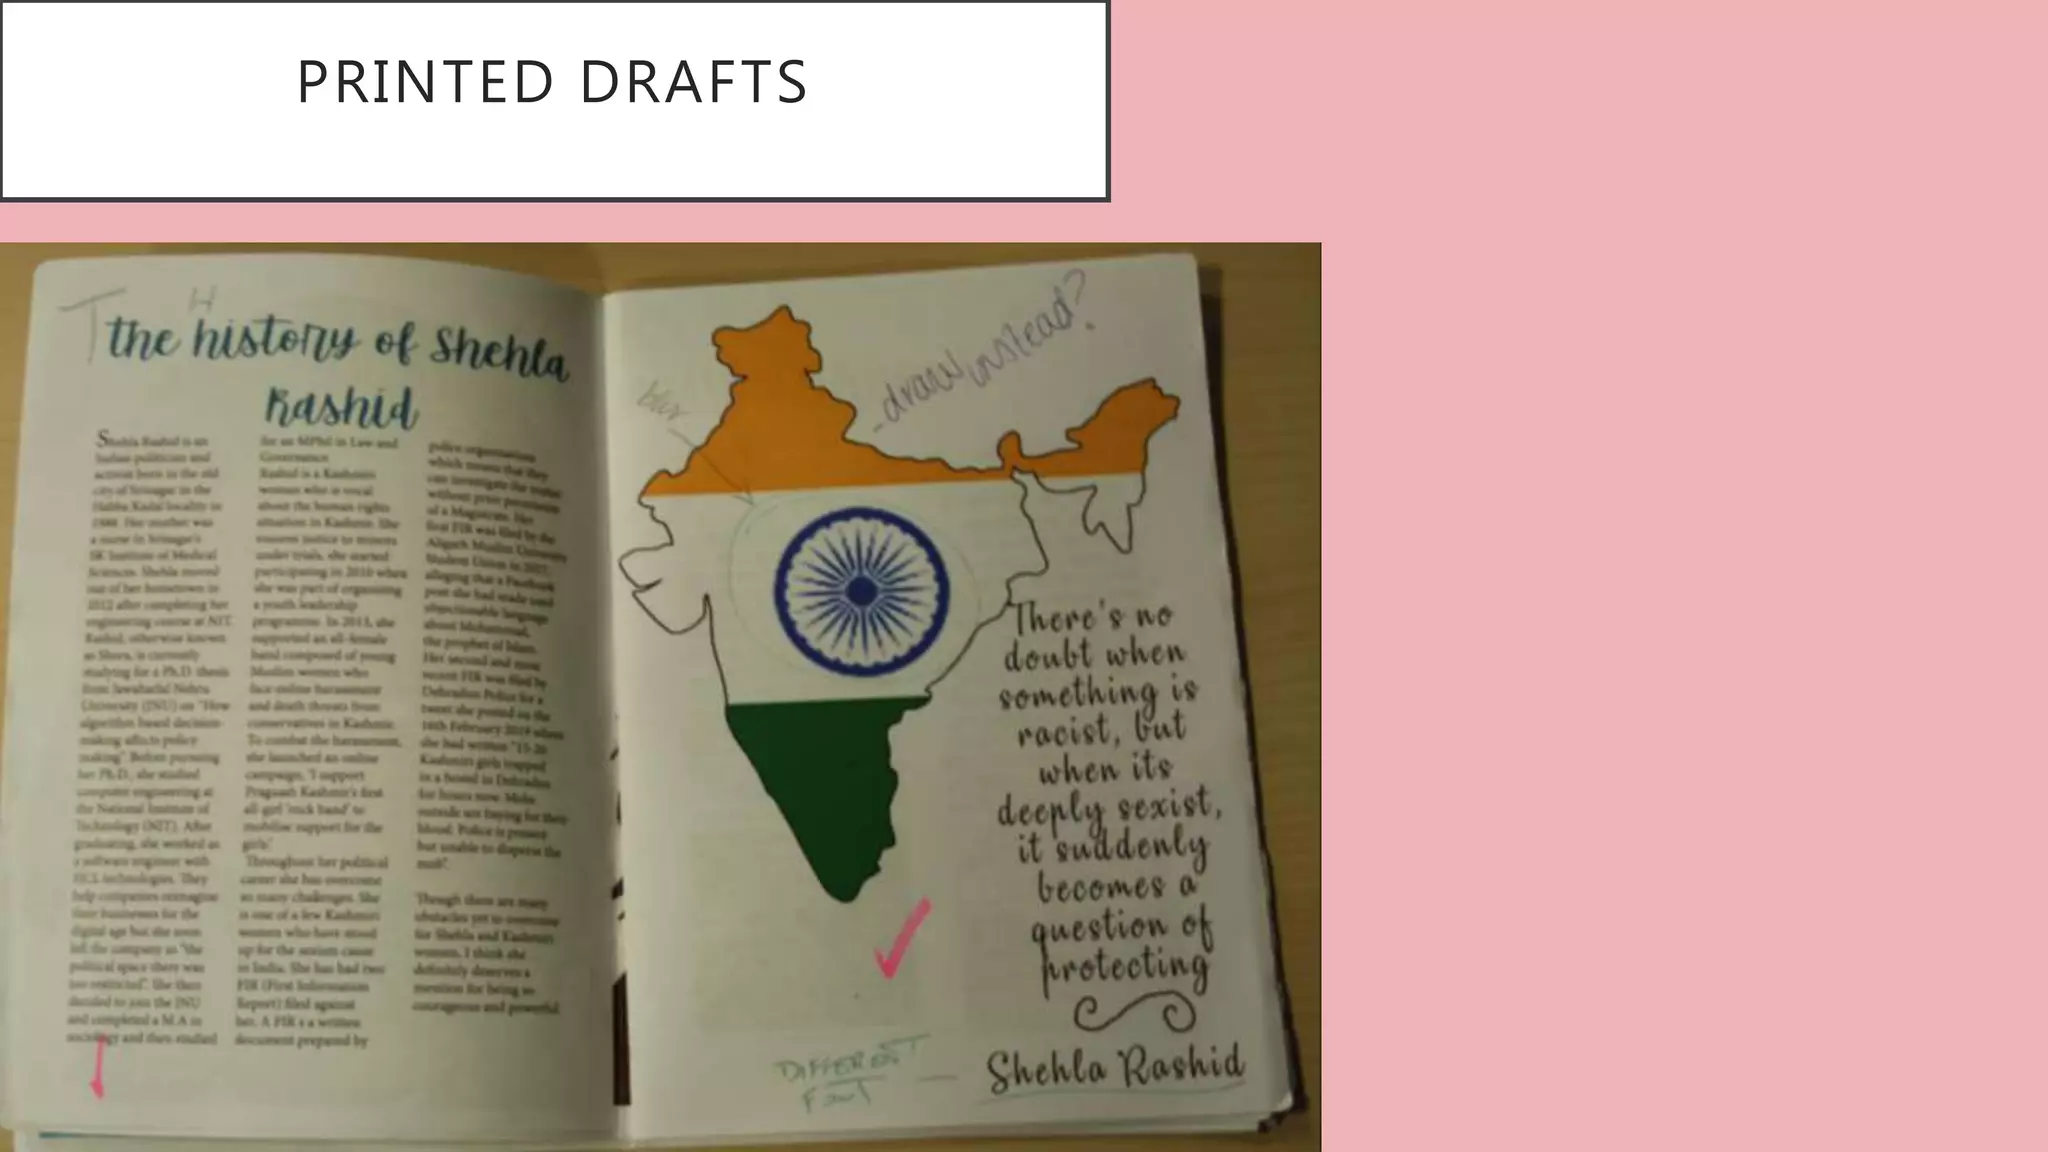 PRINTED DRAFTS
T H
the history of Shehla
Rashid
Shehla Rashid is an
Indian politician and
activist born in the old
city of Srinagar in the
Habba Kadal locality in
1988. Her mother was
a nurse in Srinagar's
SK Institute of Medical
Sciences. Shehla moved
out of her hometown in
2012 after completing her
engineering course at NIT.
Rashid, otherwise known
as Shora, is currently
studying for a Ph.D. thesis
from Jawaharlal Nehru
University (JNU) on "How
algorithm based decision-
making affects policy
making". Before pursuing
her Ph.D., she studied
computer engineering at
the National Institute of
Technology (NIT). After
graduating, she worked as
a software engineer with
HCL technologies. They
help companies reimagine
their businesses for the
digital age but she soon
left the company as "the
political space there was
too restricted". She then
decided to join the JNU
and completed a M.A in
sociology and then studied
for an MPhil in Law and
Governance.
Rashid is a Kashmiri
woman who is vocal
about the human rights
situation in Kashmir. She
ensures justice to minors
under trials, she started
participating in 2010 when
she was part of organising
a youth leadership
programme. In 2013, she
supported an all-female
band composed of young
Muslim women who
face online harassment
and death threats from
conservatives in Kashmir.
To combat the harassment,
she launched an online
campaign, "I support
Pragaash Kashmir's first
all-girl 'rock band' to
mobilise support for the
girls".
Throughout her political
career she has overcome
so many challenges. She
is one of a few Kashmiri
women who have stood
up for the sexism cause
in India. She has had two
FIR (First Information
Report) filed against
her. A FIR s a written
document prepared by
police organisations
which means that they
can investigate the matter
without prior permission
of a Magistrate. Her
first FIR was filed by the
Aligarh Muslim University
Student Union in 2017,
alleging that a Facebook
post she had made used
objectionable language
about Mohammad,
the prophet of Islam.
Her second and most
recent FIR was filed by
Dehradun Police for a
tweet she posted on the
16th February 2019 when
she had written "15-20
Kashmiri girls trapped
in a hostel in Dehradun
for hours now. Mobs
outside are baying for their
blood. Police is present
but unable to disperse the
mob".
Though there are many
obstacles yet to overcome
for Shehla and Kashmiri
women, I think she
definitely deserves a
mention for being so
courageous and powerful.
blur
- draw instead?
There's no
doubt when
something is
racist, but
when its
deeply sexist,
it suddenly
becomes a
question of
protecting
Shehla Rashid
DIFFERENT
FONT